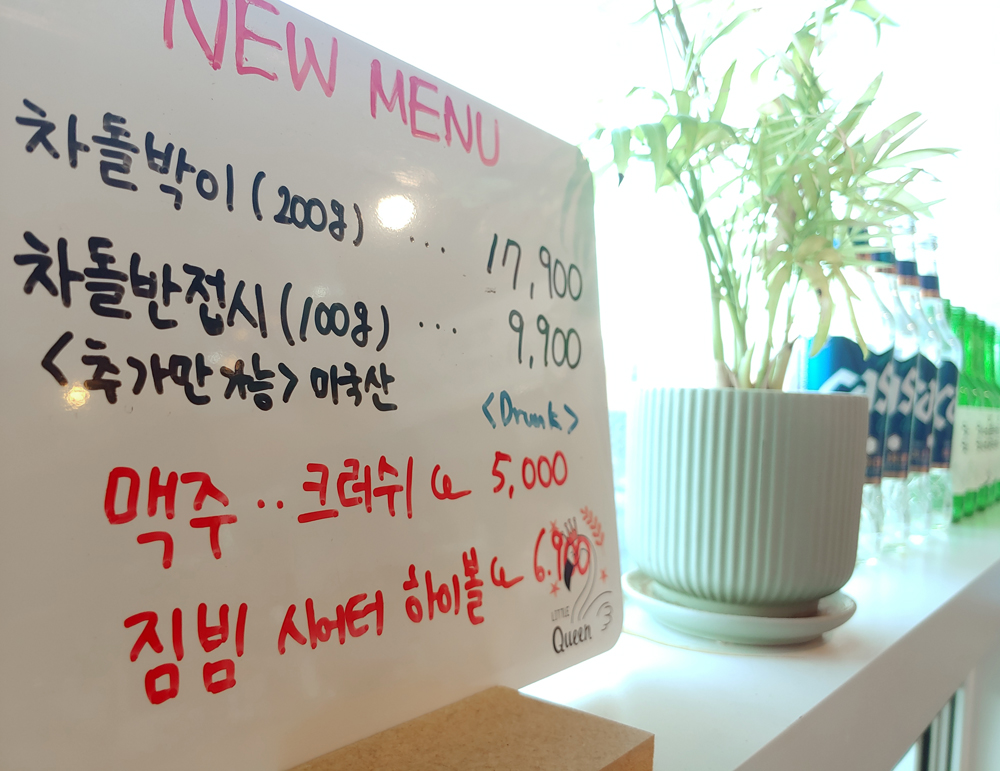 NEW MENU
차돌박이 (200g) ... 17,900
차돌반접시 (100g) ... 9,900
<추가만 가능> 미국산
<Drunk>
맥주 .. 크러쉬 5,000
짐빔 시어터 하이볼 6.900
LITTLE
Queen